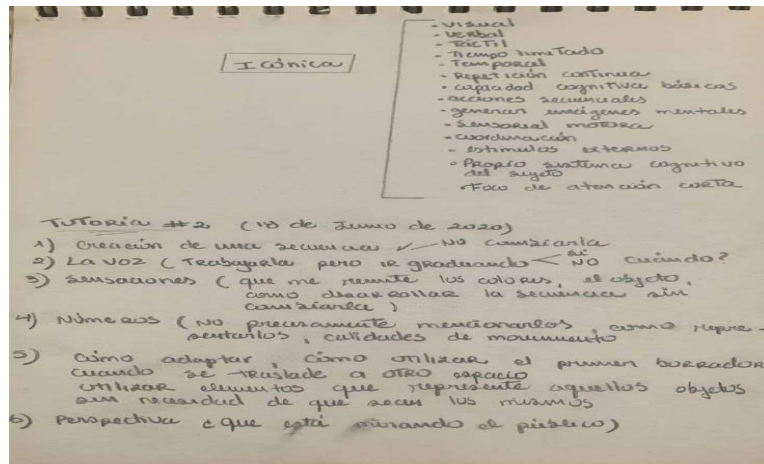 Icónica
- visual
- verbal
- Táctil
- Tiempo limitado
- Temporal
- Repetición continua
- capacidad cognitiva básicas
- acciones secuenciales
- generan imágenes mentales
- sensorial motora
- coordinación
- estímulos externos
- Propio sistema cognitivo
del sujeto
- Foco de atención corta
TUTORIA #2 (18 de Junio de 2020)
1) Creación de una secuencia ✓ — NO cambiarla
2) La voz (Trabajarla pero ir graduando < si NO cuándo?
3) Sensaciones (que me remite los colores, el objeto,
como desarrollar la secuencia sin
cambiarla)
4) Números (No precisamente mencionarlos, como repre-
sentarlos, calidades de movimiento
5) Cómo adaptar, cómo utilizar el primer borrador
cuando se traslade a otro espacio
utilizar elementos que represente aquellos objetos
sin necesidad de que sean los mismos
6) Perspectiva ¿ que está mirando el público)